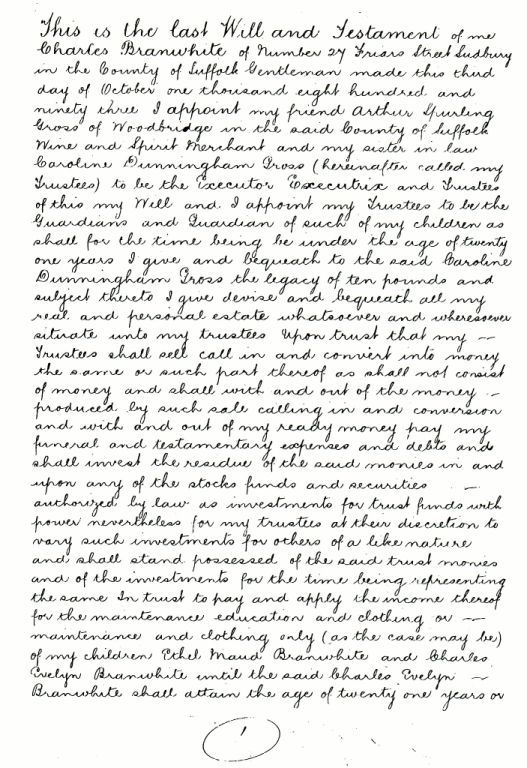 This is the last Will and Testament of me
Charles Branwhite of Number 27 Friars Street Sudbury
in the County of Suffolk Gentleman made this third
day of October one thousand eight hundred and
ninety three I appoint my friend Arthur Spurling
Gross of Woodbridge in the said County of Suffolk
Wine and Spirit Merchant and my sister in law
Caroline Dunningham Gross (hereinafter called my
Trustees) to be the Executor Executrix and Trustees
of this my Will and I appoint my Trustees to be the
Guardians and Guardian of such of my children as
shall for the time being be under the age of twenty
one years I give and bequeath to the said Caroline
Dunningham Gross the legacy of ten pounds and
subject thereto I give devise and bequeath all my
real and personal estate whatsoever and wheresoever
situate unto my trustees Upon trust that my —
Trustees shall sell call in and convert into money
the same or such part thereof as shall not consist
of money and shall with and out of the money —
produced by such sale calling in and conversion
and with and out of my ready money pay my
funeral and testamentary expenses and debts and
shall invest the residue of the said monies in and
upon any of the stocks funds and securities —
authorized by law as investments for trust funds with
power nevertheless for my trustees at their discretion to
vary such investments for others of a like nature
and shall stand possessed of the said trust monies
and of the investments for the time being representing
the same In trust to pay and apply the income thereof
for the maintenance education and clothing or —
maintenance and clothing only (as the case may be)
of my children Ethel Maud Branwhite and Charles
Evelyn Branwhite until the said Charles Evelyn —
Branwhite shall attain the age of twenty one years or
1